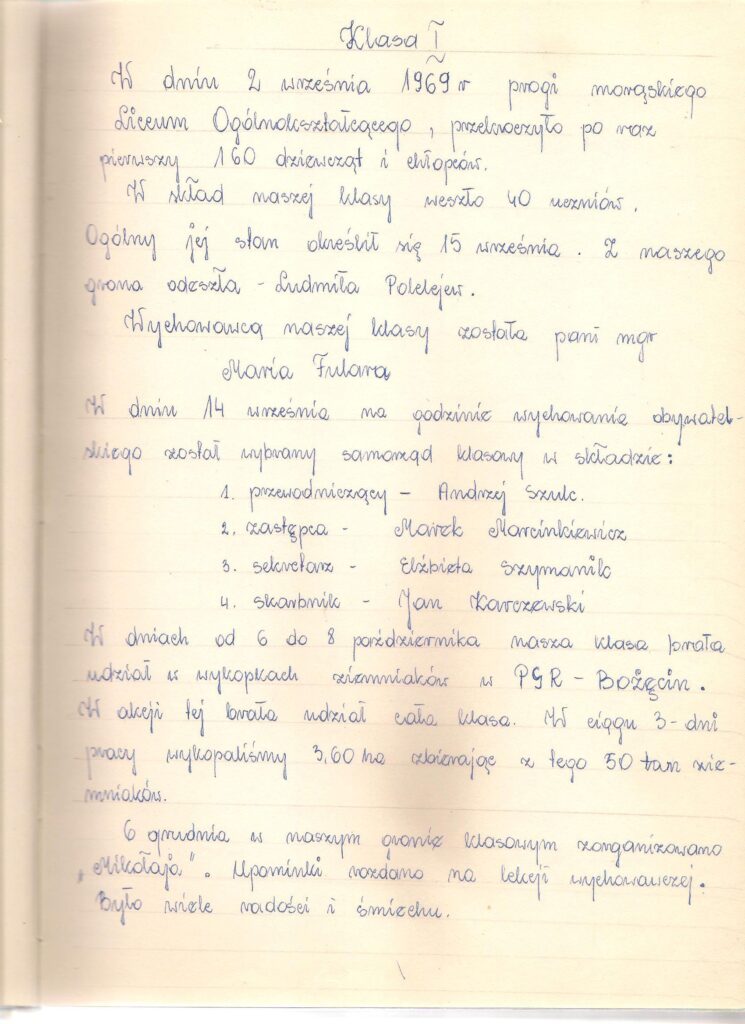 Klasa I
W dniu 2 września 1969 r progi morąskiego
Liceum Ogólnokształcącego, przekroczyło po raz
pierwszy 160 dziewcząt i chłopców.
W skład naszej klasy weszło 40 uczniów.
Ogólny jej stan określił się 15 września. Z naszego
grona odeszła - Ludmiła Polelejew.
Wychowawcą naszej klasy została pani mgr
Maria Fulara
W dniu 14 września na godzinie wychowania obywatel-
skiego został wybrany samorząd klasowy w składzie:
1. przewodniczący - Andrzej Szulc.
2. zastępca - Marek Marcinkiewicz
3. sekretarz - Elżbieta Szymanik
4. skarbnik - Jan Karczewski
W dniach od 6 do 8 października nasza klasa brała
udział w wykopkach ziemniaków w PGR - Bożęcin.
W akcji tej brała udział cała klasa. W ciągu 3-dni
pracy wykopaliśmy 3,60 ha zbierając z tego 50 ton zie-
mniaków.
6 grudnia w naszym gronie klasowym zorganizowano
„Mikołaja". Upominki rozdano na lekcji wychowawczej.
Było wiele radości i śmiechu.